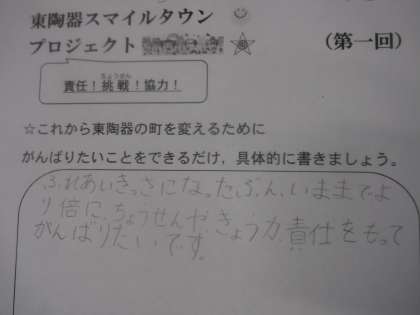 東陶器スマイルタウン
プロジェクト
(第一回)
責任!挑戦!協力!
ちょうせん
☆これから東陶器の町を変えるために
がんばりたいことをできるだけ,具体的に書きましょう。
ふれあいきっさになったぶん、いままでよ
り倍に、ちょうせんや、きょう力、責任をもって
がんばりたいです。